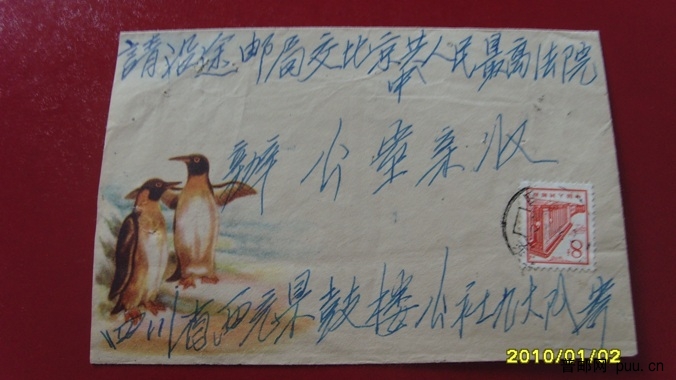 請沿途邮局交北京共人民最高法院
中
辦公室亲收
8
四川省西充県鼓楼公社九大队寄
2010/01/02
普邮网 puu.cn